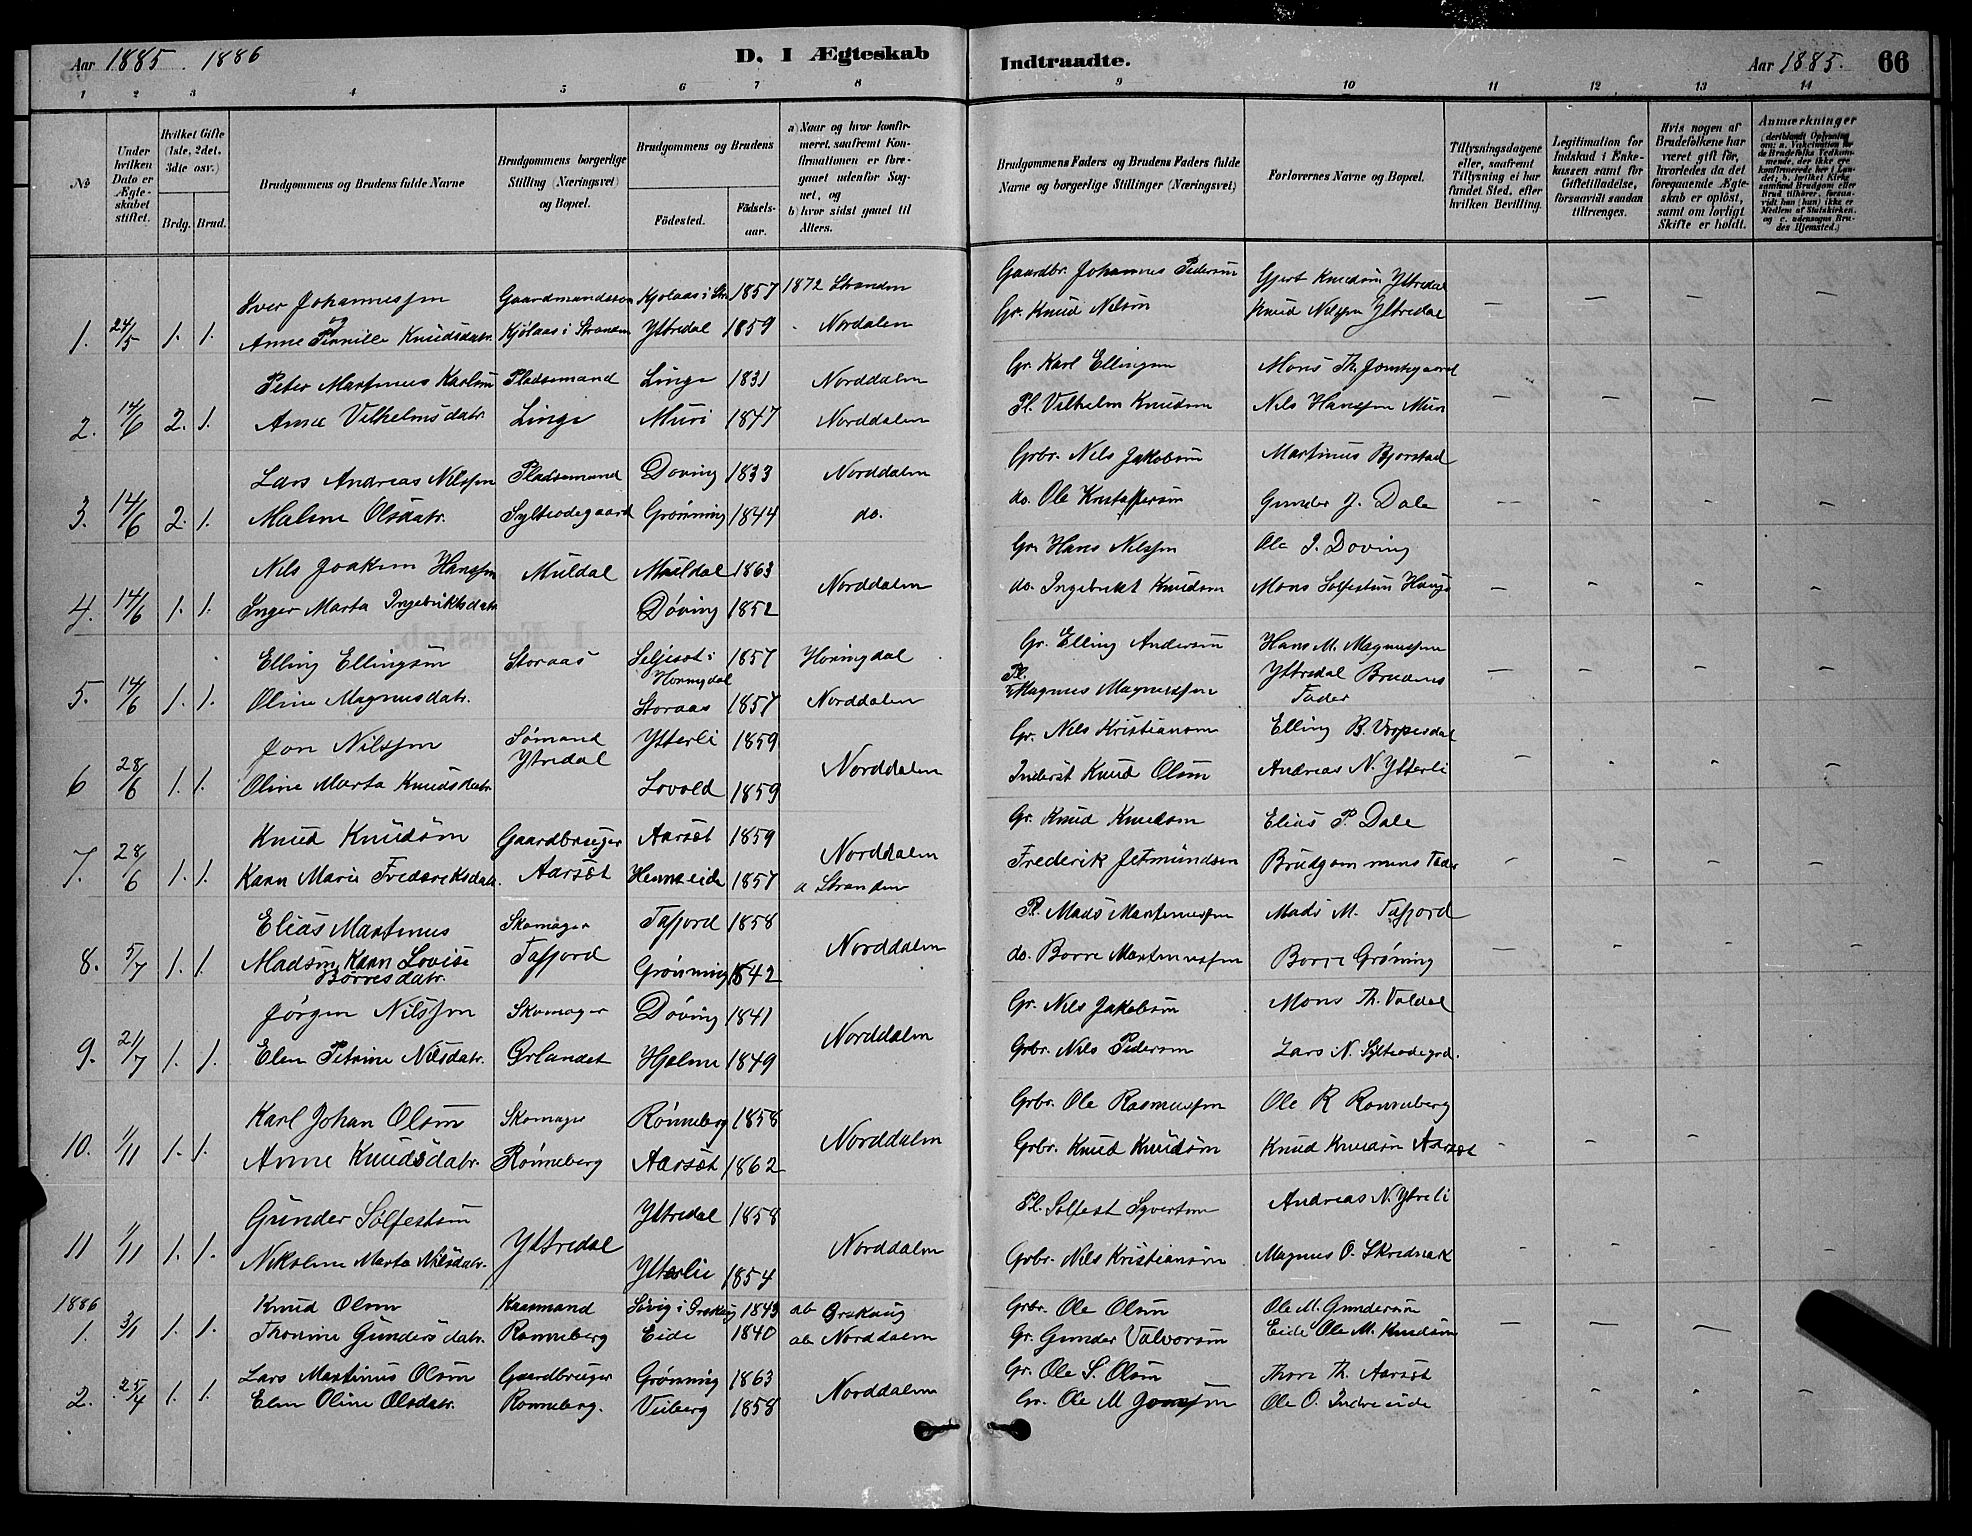 Aar 1885. 1886 D. I Ægteskab Indtraadte. Aar 1885. 66
1 2 3 4 5 6 7 8 9 10 11 12 13 14
№
Under hvilken Dato er Ægteskabet stiftet.
Hvilket Gifte (1ste, 2det, 3dte osv.)
Brdg. Brud.
Brudgommens og Brudens fulde Navne
Brudgommens borgerlige Stilling (Næringsvei) og Bopæl.
Brudgommens og Brudens
Födested. Födselsaar.
a) Naar og hvor konfirmeret, saafremt Konfirmationen er foregaaet udenfor Sognet, og
b) hvor sidst gaaet til Alters.
Brudgommens Faders og Brudens Faders fulde Navne og borgerlige Stillinger (Næringsvei)
Forlovernes Navne og Bopæl.
Tillysningsdagene eller, saafremt Tillysning ei har fundet Sted, efter hvilken Bevilling.
Legitimation for Indskud i Enkekassen samt for Giftetilladelse, forsaavidt saadan tiltrænges.
Hvis nogen af Brudefolkene har været gift för, hvorledes da det foregaaende Ægteskab er oplöst, samt om lovligt Skifte er holdt.
Anmærkninger (deriblandt Oplysning om: a. Vakcination for de Brudefolks Vedkommende, der ikke ere konfirmerede her i Landet; b. hvilket Kirkesamfund Brudgom eller Brud tilhörer, forsaavidt han (hun) ikke er Medlem af Statskirken, og c. udensogns Brudes Hjemsted.)
Iver Johannessen Gaardmandssøn Kjølaas i Str 1857 1872 Stranden Gaardbr. Johannes Pedersen Gjert Knudsøn Ytredal
1. 24/5 1. 1. og Anne Pernille Knudsdatr. Kjölaas i Stranden Yttredal 1859 Nordalen Gr. Knud Nilsøn Knud Nilssen Yttredal — — — —
Peter Martinus Karlsen Pladsemand Linge 1831 Norddalen Gr. Karl Ellingsen Mons Th.
2. 14/6 2. 1. Anne Vilhelmsdatr. Linge Muri 1847 Norddalen Pl. Vilhelm Knudsen Nils Hanssen Muri — — — —
Lars Andreas Nilssen Pladsemand Doving 1833 Norddalen Grbr. Nils Jakobsen Martinus Bjorstad
3. 14/6 2. 1. Malene Olsdatr. Sylteodegaard Grønning 1844 do. do. Ole Kristoffersen Gunder J. Dale — - - -
Nils Joakim Hanssen Muldal Muldal 1863 Norddalen Gr. Hans Nilssen Ole J. Doving
4. 14/6 1. 1. Inger Marta Ingebriktsdatr Døving 1852 do. Ingebrikt Knudsen Mons Solfestsen Hauge — - - -
Elling Ellingsen Storaas Seljeset i Horningdal 1857 Horningdal Gr. Elling Andersen Hans M. Magnussen
5. 14/6 1. 1. Oline Magnusdatr. Storaas 1857 Norddalen Pl. Magnus Magnussen Yttredal Brudens Fader — - - -
Jon Nilssen Sømand Ytterli 1859 Gr. Nils Kristiansen Elling B.
6 28/6 1. 1. Oline Marta Knudsdatr. Ytredal Lovold 1859 Norddalen Inderst Knud Olsen Andreas N. Ytterli - - - -
Knud Knudsøn Gaardbruger Aarsæt 1859 Norddalen Gr. Knud Knudsen Elias P. Dale
7. 28/6 1. 1. Karen Marie Frederiksdatr. Aarsæt 1857 a Stranden Frederik Jetmundsen Brudgommens Fader - - - -
Elias Martinus Skomager Tafjord 1858 Pl. Mads Martinussen Mads M. Tafjord
8. 5/7 1. 1. Madsen, Karen Lovise Børresdatr. Tafjord Grønning 1842 Norddalen do. Borre Martinussen Borre Grøning - - - -
Jørgen Nilssen Skomager Døving 1841 Gr. Nils Jakobsen Mons Th. Valdal
9. 21/7 1. 1. Elen Petrine Nilsdatr. Ørlandet Hjelme 1849 Norddalen Grbr. Nils Pedersen Lars N. Sylteodegrd.
Karl Johan Olsen Skomager Rønneberg 1858 Grbr. Ole Rasmussen Ole R Ronneberg
10. 1/11 1. 1. Anne Knudsdatr. Rønneberg Aarsæt 1862 Norddalen Grbr. Knud Knudsøn Knud Knudsøn Aarsæt - - -
Gunder Sølfestsøn Yttredal 1858 Pl. Solfest Syvertsen Andreas N. Ytreli
11 1/11 1. 1. Nikoline Marta Nilsdatr. Yttredal Ytterlie 1854 Norddalen Grbr. Nils Kristiansøn Magnus O. - - - -
1886 Knud Olsen Kaarmand 1843 ab Ørskoug Grbr. Ole Olsen Ole M. Gundersen
1. 3/1 1. 1. Thomine Gundersdatr. Ronneberg Eide 1840 ab Norddalen Gr. Gunder Valvorsøn Eide Ole M. Knudsøn — — - -
Lars Martinus Olsen Gaardbruger Grønning 1863 Gr. Ole S. Olsen Thore Th. Aarsæt
2. 25/4 1. 1. Elen Oline Olsdatr. Ronneberg. Veiberg 1858 Norddalen Gr. Ole M Jonssen Ole O. Indreeide - - - -